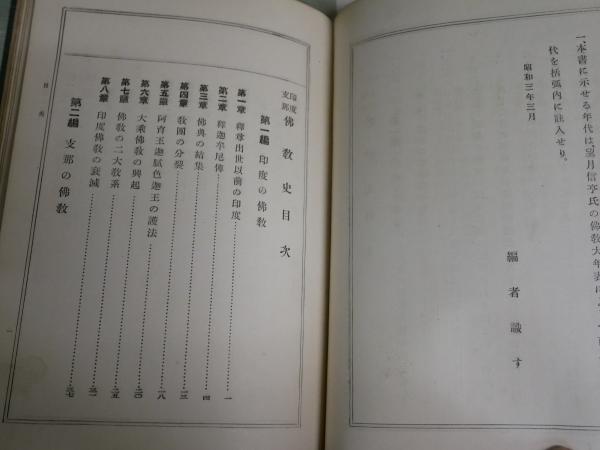 一、本書に示せる年代は、望月信亨氏の佛教大年表に
代を括弧内に註入せり。
昭和三年三月
編者識す
印度支那 佛教史目次
第一編 印度の佛教
第一章 釋尊出世以前の印度 一
第二章 釋迦牟尼傳 四
第三章 佛典の結集 一三
第四章 教團の分裂 一八
第五章 阿育王迦膩色迦王の護法
第六章 大乘佛教の興起
第七章 佛教の二大教系
第八章 印度佛教の衰滅
第二編 支那の佛教
目次
一